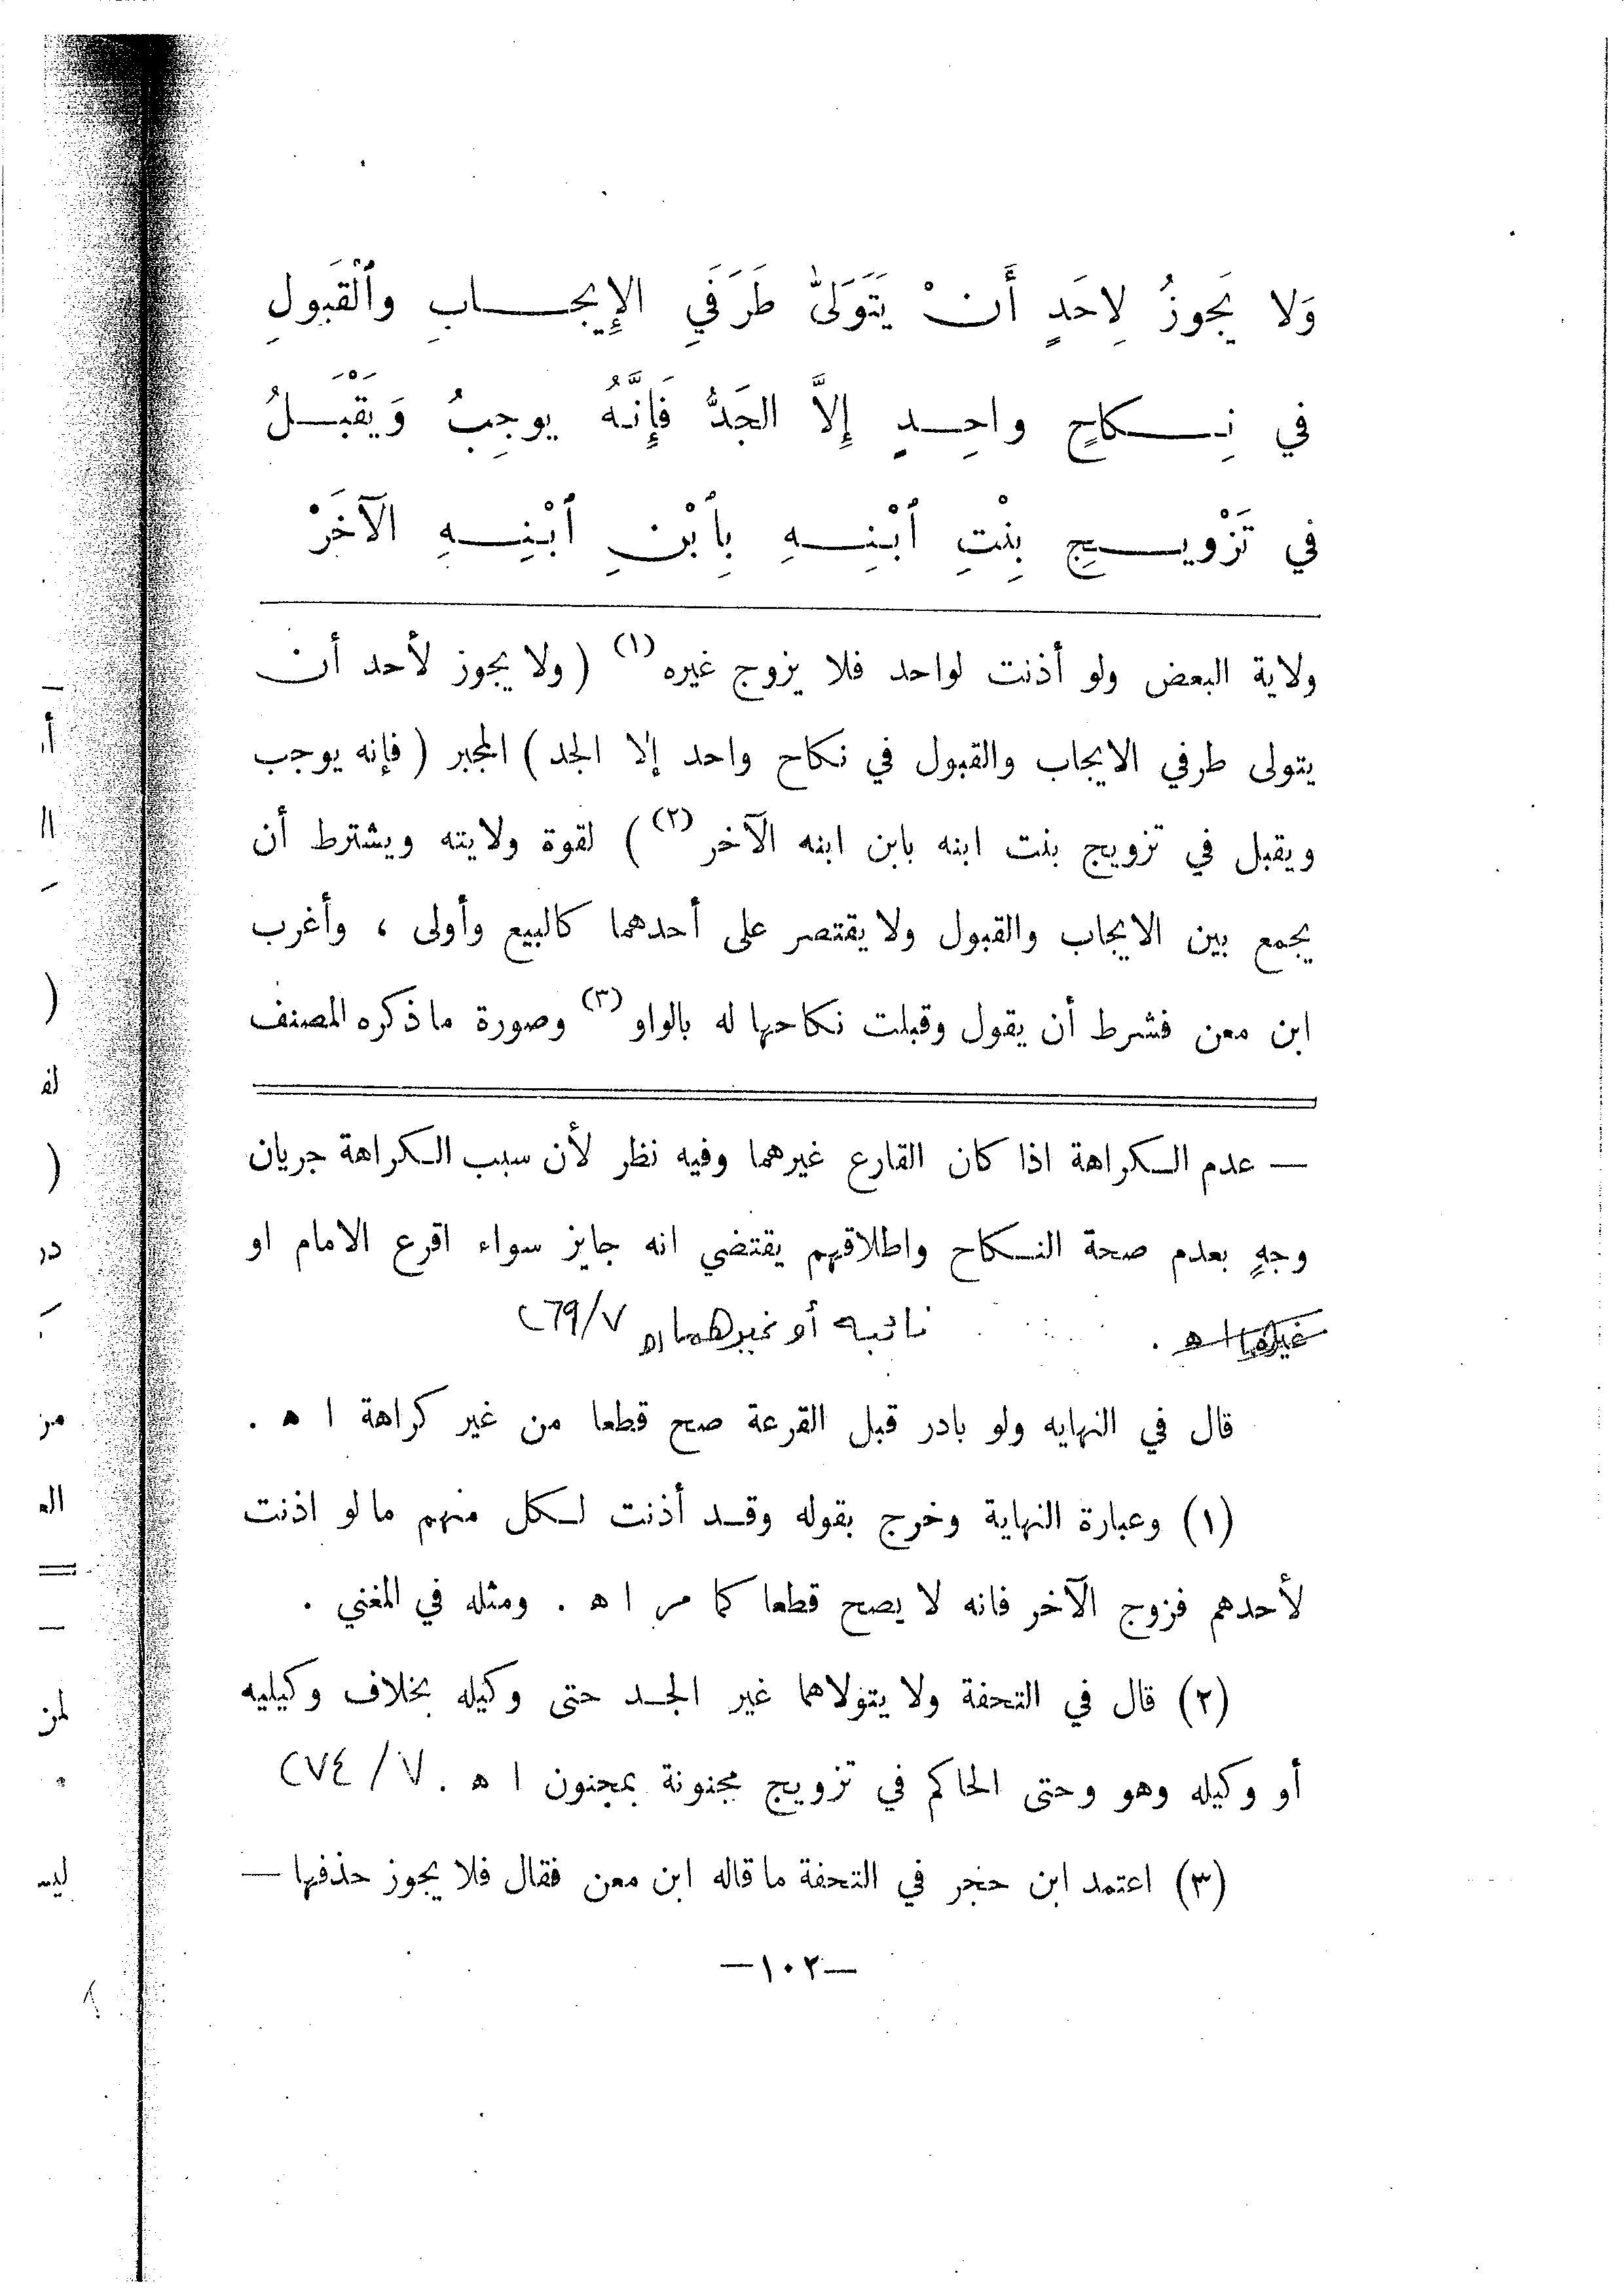 وَلا يَجوزُ لِاحَدٍ أَنْ يَتَوَلىّٰ طَرَفَيِ الإِيجـابِ وٱلْقَبولِ
في نِـكاحٍ واحِـدٍ إِلاَّ الجَدُّ فَإِنَّهُ يوجِبُ وَيَقْبَـلُ
في تَزْويـجِ بِنْتِ ٱبْنِـهِ بِٱبْنِ ٱبْنِـهِ الآخَرْ
ولاية البعض ولو أذنت لواحد فلا يزوج غيره (١) ( ولا يجوز لأحد أن
يتولى طرفي الايجاب والقبول في نكاح واحد إلا الجد ) المجبر ( فإنه يوجب
ويقبل في تزويج بنت ابنه بابن ابنه الآخر (٢) ) لقوة ولايته ويشترط أن
يجمع بين الايجاب والقبول ولا يقتصر على أحدهما كالبيع وأولى ، وأغرب
ابن معن فشرط أن يقول وقبلت نكاحها له بالواو (٣) وصورة ما ذكره المصنف
— عدم الـكراهة اذا كان القارع غيرهما وفيه نظر لأن سبب الـكراهة جريان
وجهٍ بعدم صحة النـكاح واطلاقهم يقتضي انه جايز سواء اقرع الامام او
غيرهما ا ه . نائبه أو غيرهما اه ٧/
قال في النهايه ولو بادر قبل القرعة صح قطعا من غير كراهة ا ه .
(١) وعبارة النهاية وخرج بقوله وقـد أذنت لـكل منهم ما لو اذنت
لأحدهم فزوج الآخر فانه لا يصح قطعا كما مر ا ه . ومثله في المغني .
(٢) قال في التحفة ولا يتولاهما غير الجـد حتى وكيله بخلاف وكيليه
أو وكيله وهو وحتى الحاكم في تزويج مجنونة بمجنون ا ه . ٧/٢٧٤
(٣) اعتمد ابن حجر في التحفة ما قاله ابن معن فقال فلا يجوز حذفها —
—١٠٢—